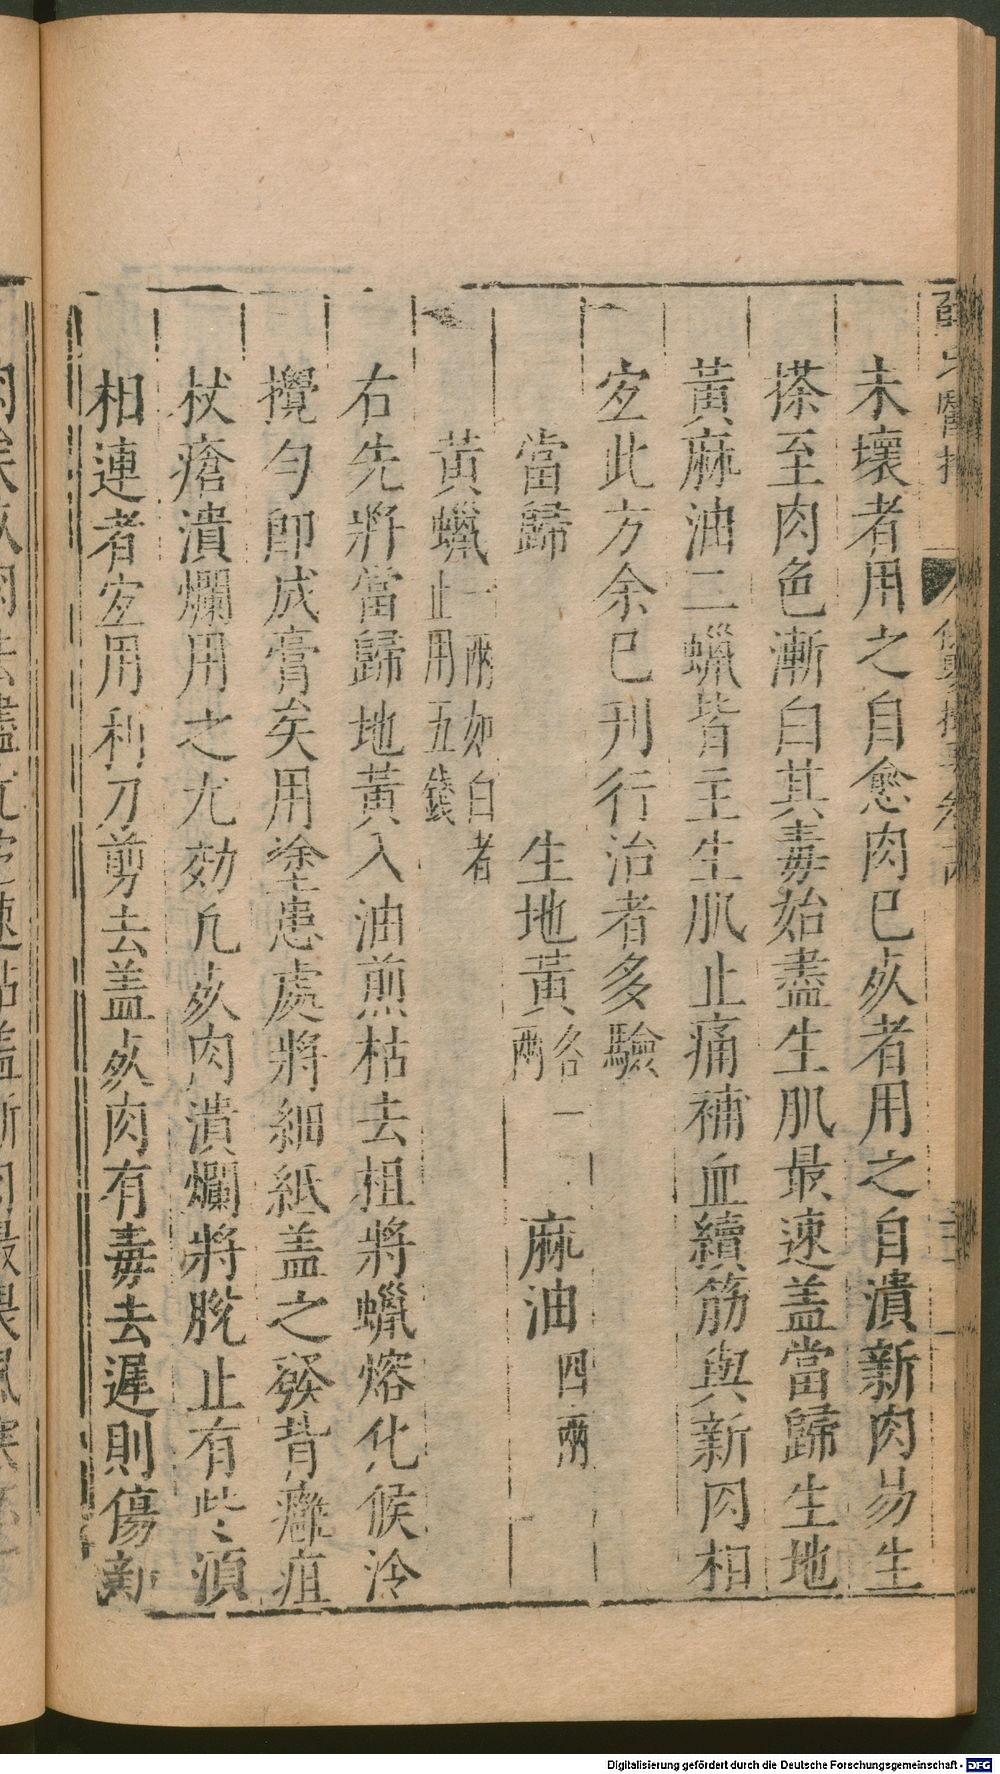 未壞者用之自愈肉已𣧑者用之自潰新肉易生
搽至肉色漸白其毒始盡生肌最速盖當歸生地
黃麻油二蠟皆主生肌止痛補血續筋與新肉相
宐此方余已刊行治者多驗
當歸 生地黃各一兩 麻油四兩
黃蠟一兩如白者止用五錢
右先將當歸地黃入油煎枯去柤將蠟熔化候冷
攪勻即成膏矣用塗患處將細紙盖之發背癰疽
杖瘡潰爛用之尤効凢𣧑肉潰爛將脫止有些〻湏
相連者宐用利刀剪去盖𣧑肉有毒去遲則傷新
Digitalisierung gefördert durch die Deutsche Forschungsgemeinschaft - DFG